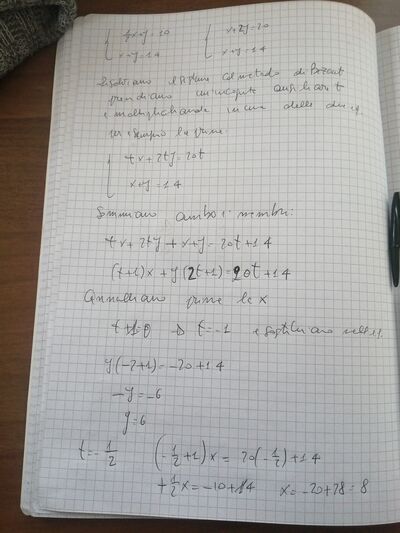 { ½x+y=10 { x+2y=20
x+y=14 x+y=14
Risolviamo il sistema col metodo di Bezout
prendiamo un'incognita ausiliaria t
e moltiplichiamola in una delle due eq.
per esempio la prima.
{ tx+2ty=20t
x+y=14
Sommiamo ambo i membri:
tx+2ty+x+y=20t+14
(t+1)x+y(2t+1)=20t+14
Annulliamo prima la x
t+1=0 → t=-1 e sostituiamo nell'eq.
y(-2+1)=-20+14
-y=-6
y=6
t=-1/2 (-1/2+1)x=20(-1/2)+14
+1/2x=-10+14 x=-20+28=8